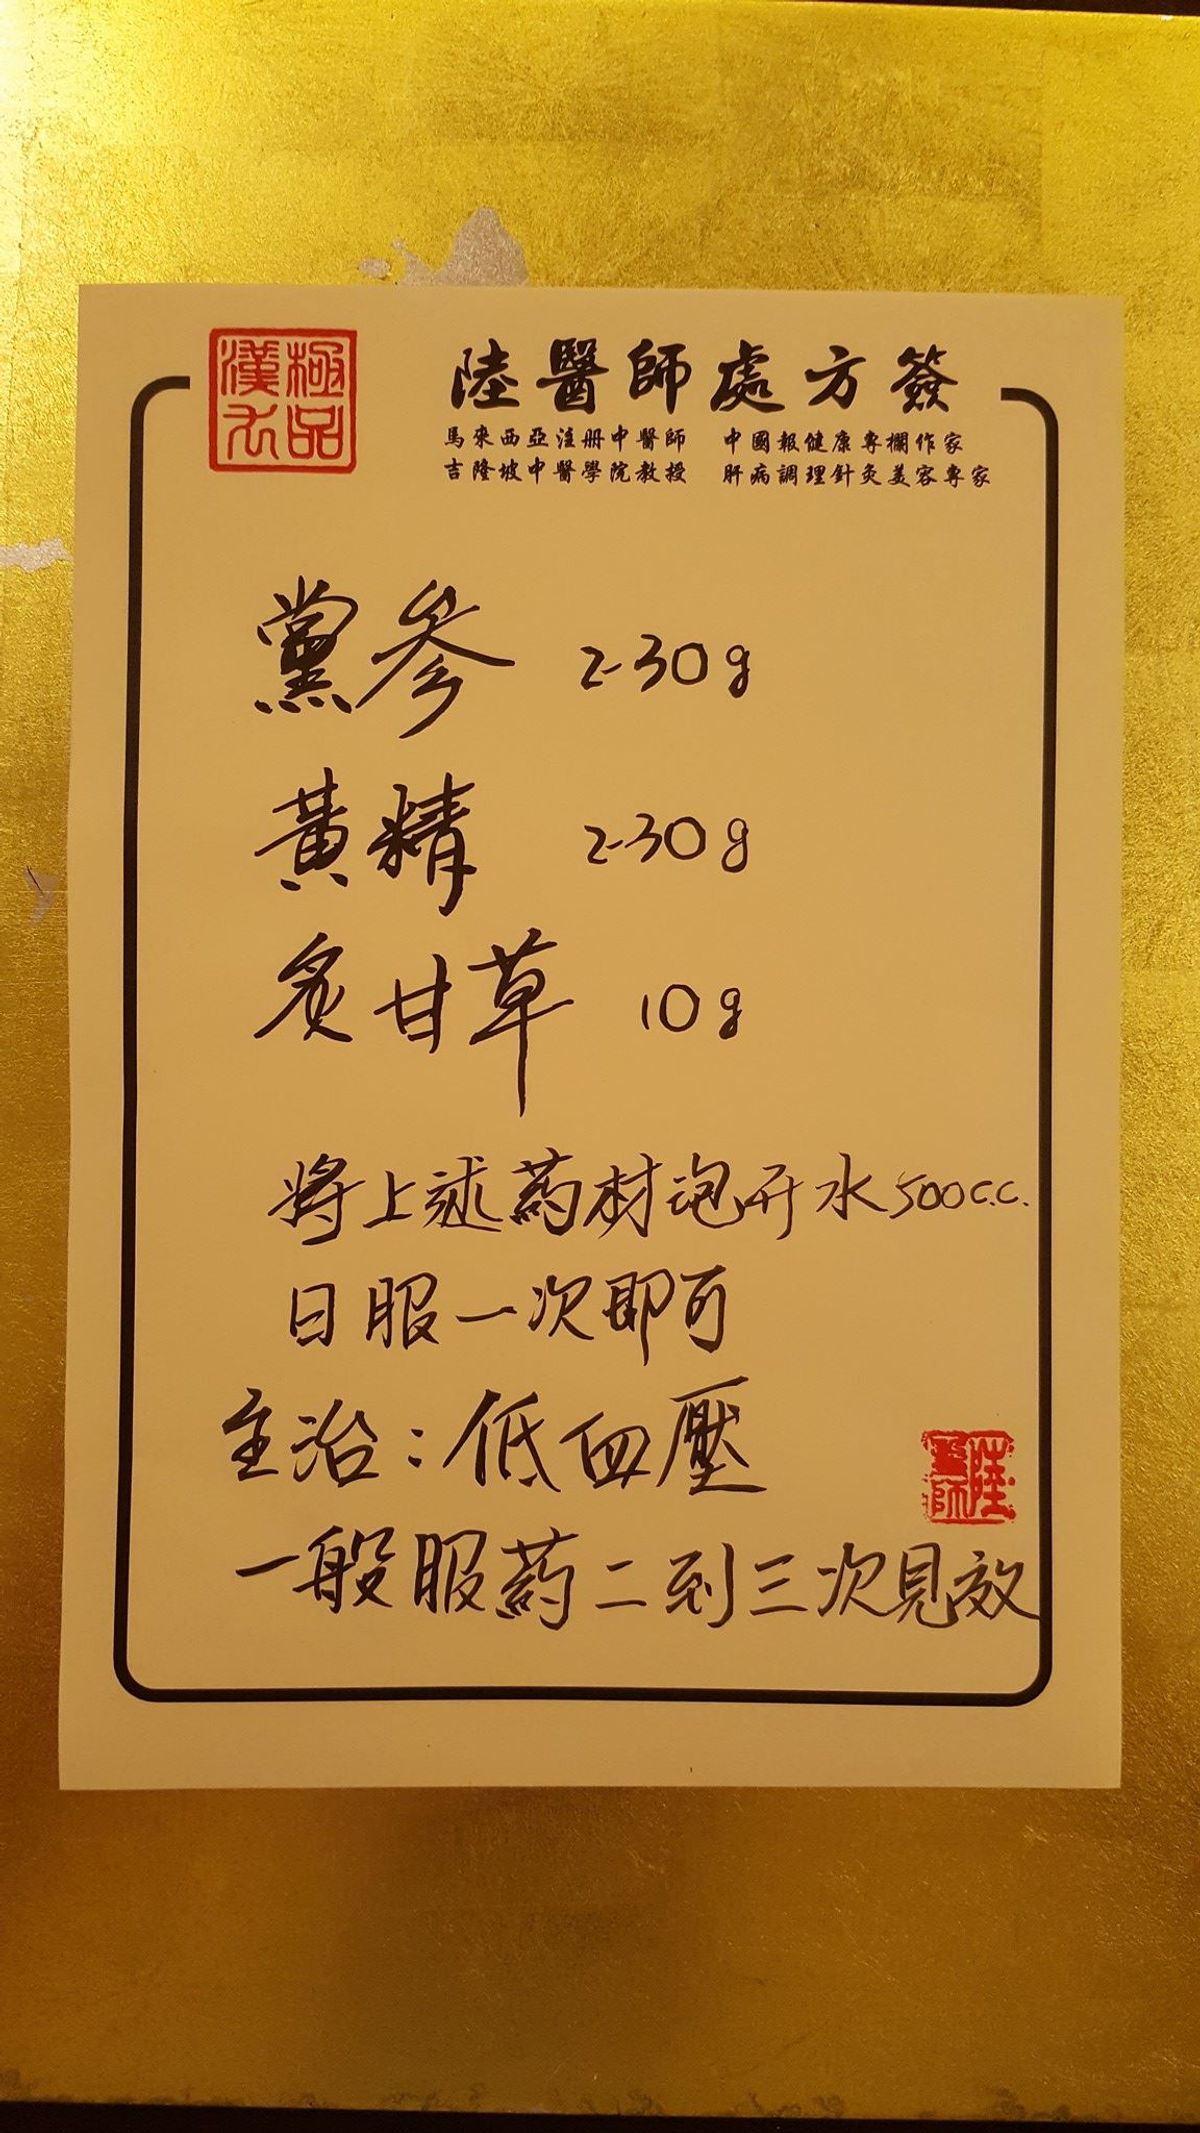 極品
漢方
陸醫師處方簽
馬來西亞注册中醫師 中國報健康專欄作家
吉隆坡中醫學院教授 肝病調理針灸美容專家
黨參 2-30g
黃精 2-30g
炙甘草 10g
將上述药材泡开水500c.c.
日服一次即可
主治：低血壓
陸醫師
一般服药二到三次見效